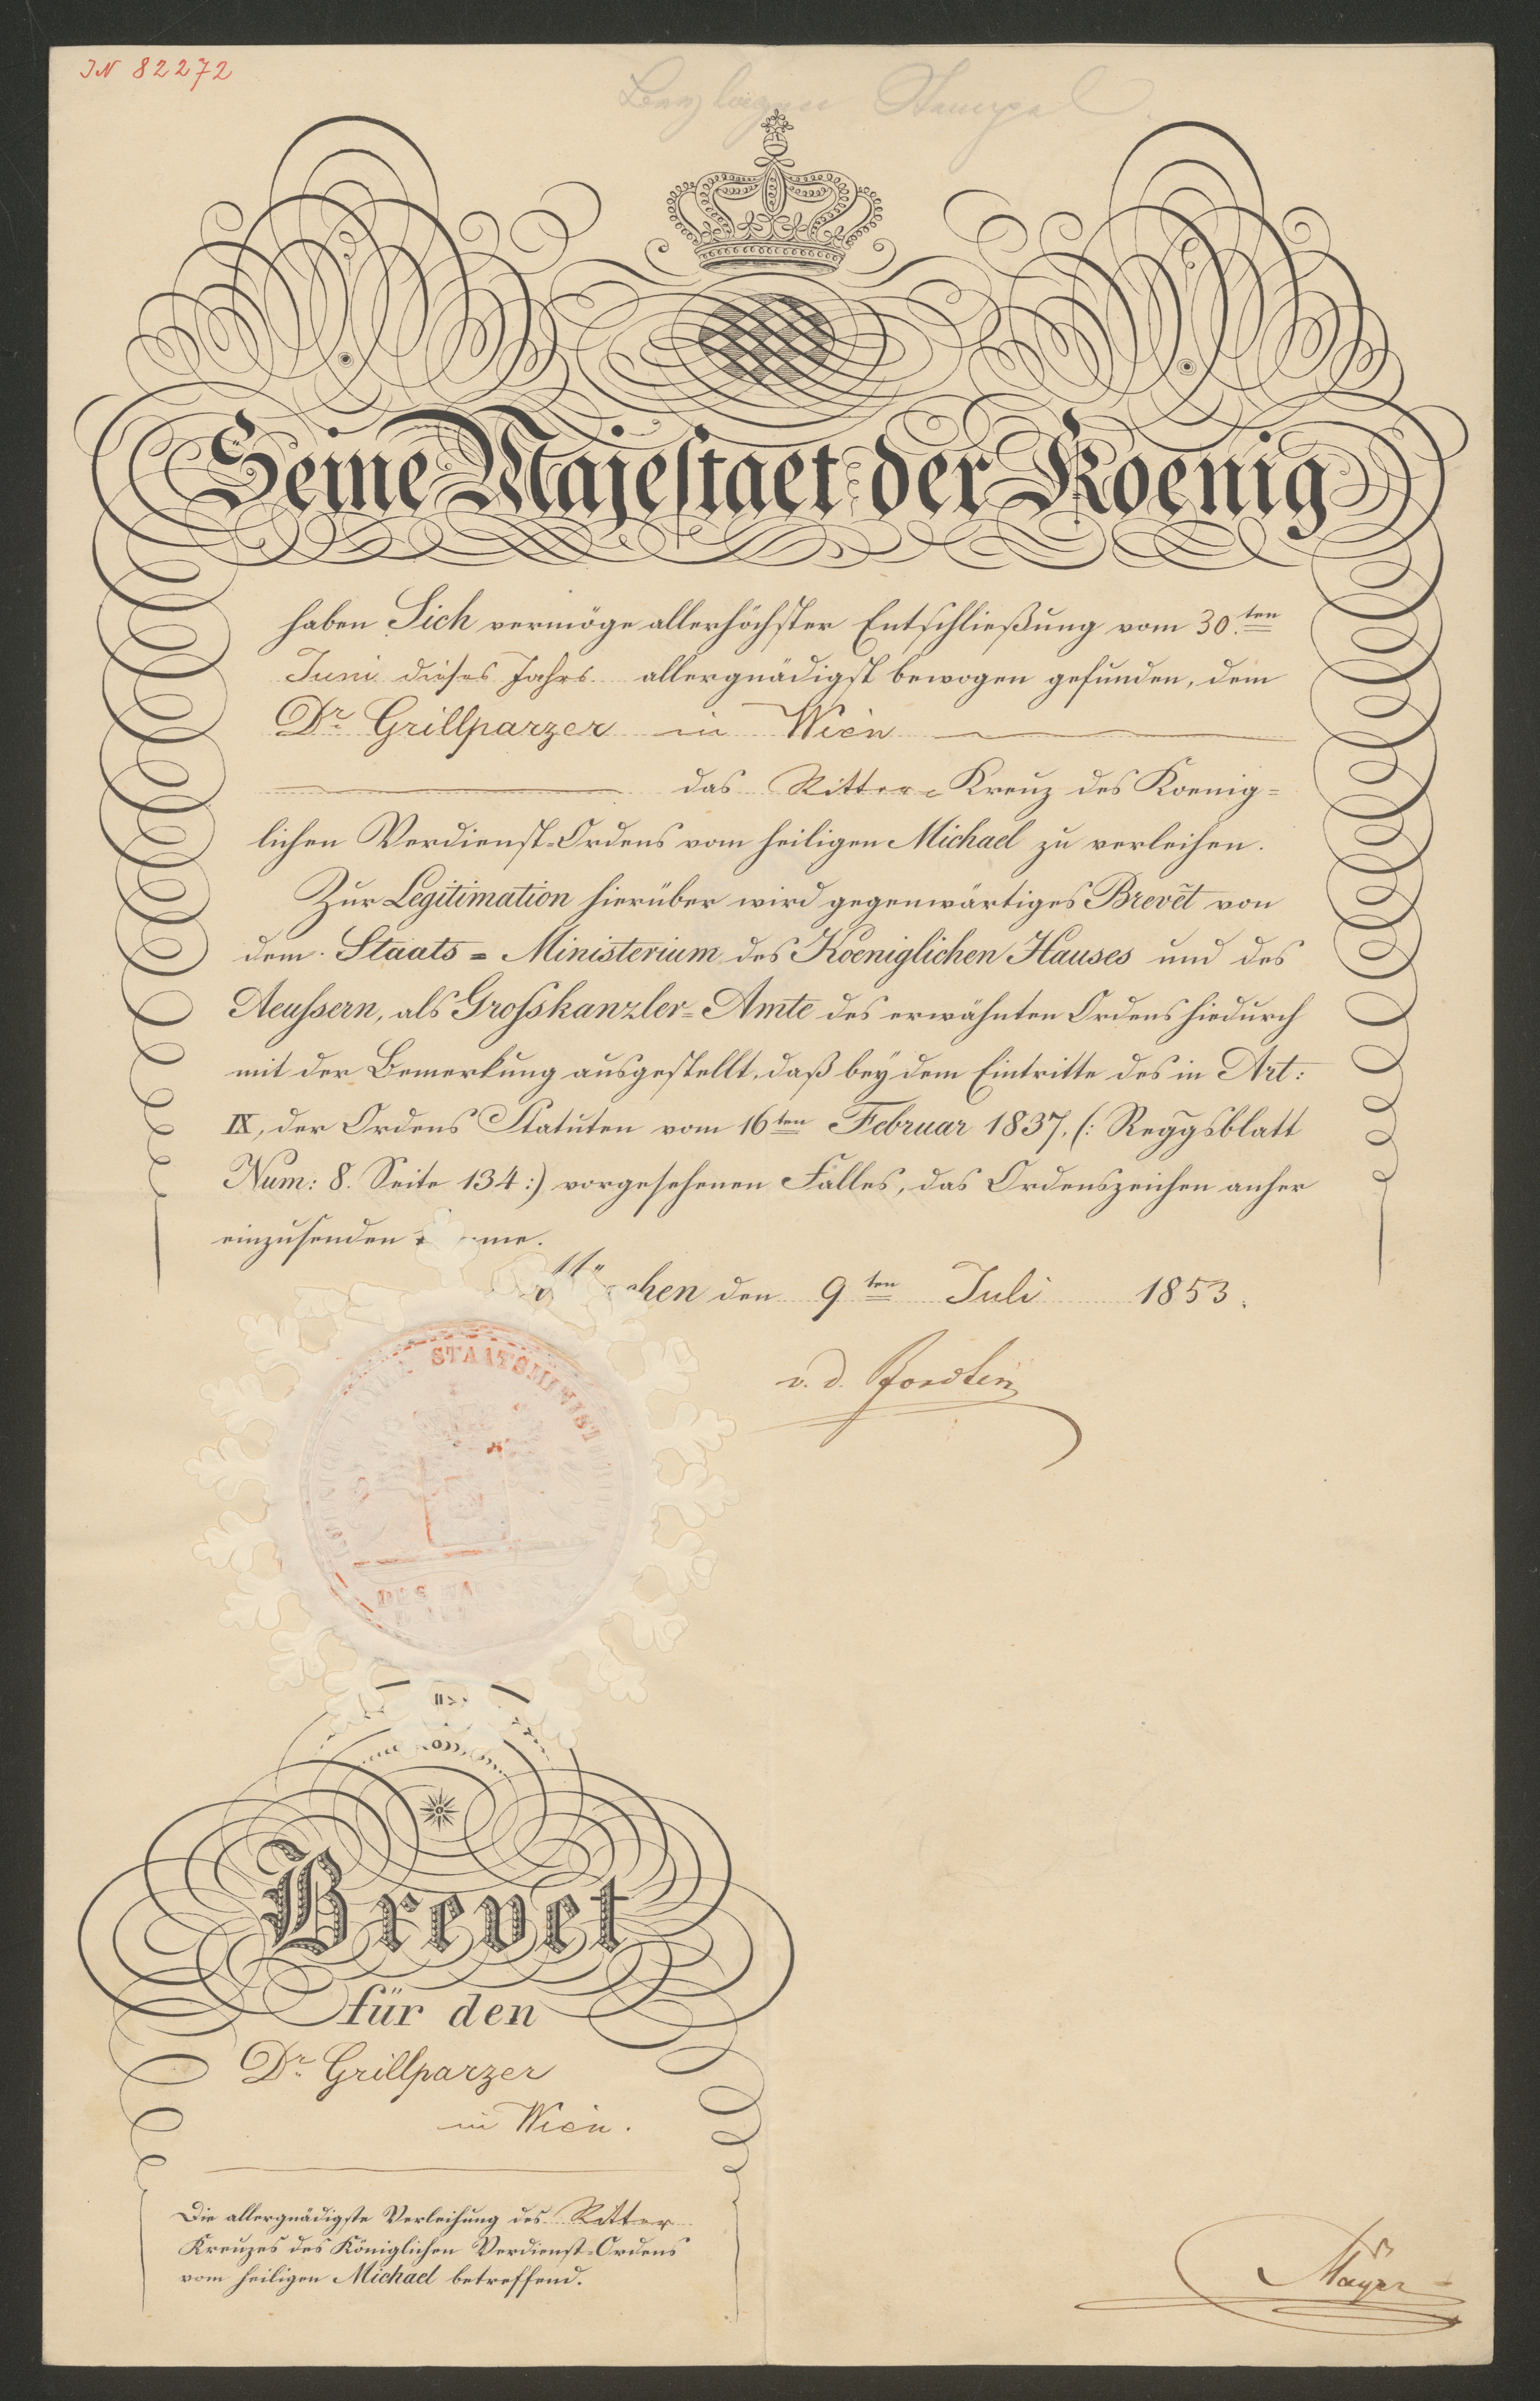 IN 82272
Seine Majestaet der Koenig
haben Sich vermöge allerhöchster Entschließung vom 30.ten
Juni dieses Jahrs allergnädigst bewogen gefunden, dem
Dr. Grillparzer in Wien
das Ritter-Kreuz des Koenig=
lichen Verdienst=Ordens vom heiligen Michael zu verleihen.
Zur Legitimation hierüber wird gegenwärtiges Brevet von
dem Staats=Ministerium des Koeniglichen Hauses und des
Aeussern, als Grosskanzler=Amte des erwähnten Ordens hiedurch
mit der Bemerkung ausgestellt, daß bey dem Eintritte des in Art:
IX, der Ordens Statuten vom 16ten Februar 1837, (: Reggsblatt
Num: 8. Seite 134 :) vorgesehenen Falles, das Ordenszeichen anher
einzusenden
München den 9ten Juli 1853.
v. d. Pfordten
STAATSMINISTERIUM
DES
Brevet
für den
Dr. Grillparzer
in Wien.
Die allergnädigste Verleihung des Ritter
Kreuzes des Königlichen Verdienst=Ordens
vom heiligen Michael betreffend.
Mayer